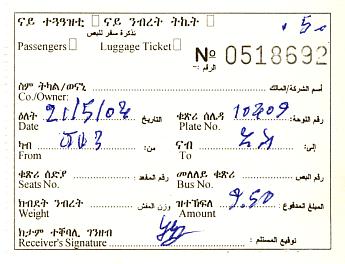 ናይ ተጓዓዝቲ ናይ ንብረት ትኬት .5.
تذكرة سفر للبص
Passengers Luggage Ticket
No 0518692
الرقم :
ስም ትካል/ወናኒ اسم الشركة/المالك:
Co./Owner:
ዕለት 21/5/04 التاريخ ቁጽሪ ሰሌዳ 10809 رقم اللوحة:
Date Plate No.
ካብ من: ናብ إلى:
From To
ቁጽሪ ሰድያ رقم المقعد: መለለይ ቁጽሪ رقم البص
Seats No. Bus No.
ክብደት ንብረት وزن العفش ዝተኸፍለ 9.50 المبلغ المدفوع:
Weight Amount
ክታም ተቐባሊ ገንዘብ توقيع المستلم:
Receiver's Signature